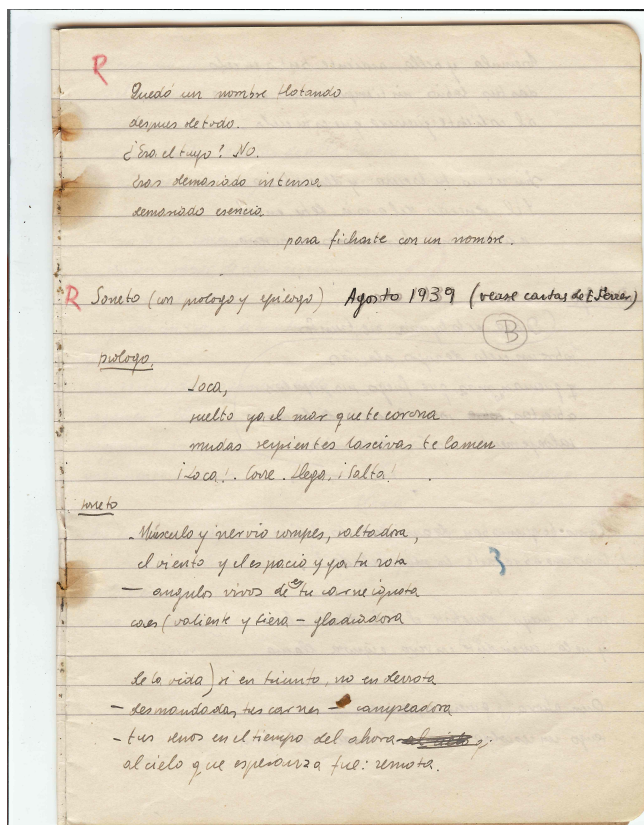 R
Quedó un nombre flotando
despues de todo.
¿Era el tuyo? No.
Eras demasiado intensa
demasiado esencia
para ficharte con un nombre.
R Soneto (con prologo y epilogo) Agosto 1939 (vease cartas de F. Serer)
B
prologo.
Loca,
suelto ya el mar que te corona
mudas serpientes lascivas te lamen
¡Loca!. Corre. Llega. ¡Salta!
soneto
- Músculo y nervio rompes, saltadora,
el viento y el espacio y ya tu rota
3
- angulos vivos de tu carne ignota
caes (valiente y fiera - gladiadora
de la vida) si en triunfo, no en derrota
- desmandadas tus carnes - campeadora
- tus senos en el tiempo del ahora
al cielo que esperanza fue: remota.